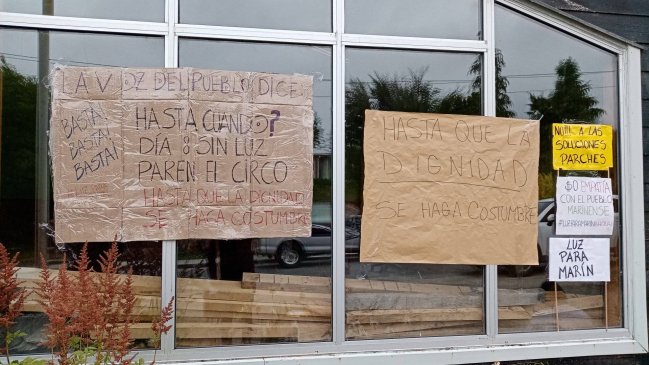 LA VOZ DEL PUEBLO DICE:
BASTA!
BASTA!
BASTA!
HASTA CUANDO?
DÍA 8 SIN LUZ
PAREN EL CIRCO
HASTA QUE LA DIGNIDAD
SE HAGA COSTUMBRE
HASTA QUE LA
DIGNIDAD
SE HAGA COSTUMBRE
NO A LAS
SOLUCIONES
PARCHES
$0 EMPATÍA
CON EL PUEBLO
MARINENSE
LUZ PARA
MARÍN